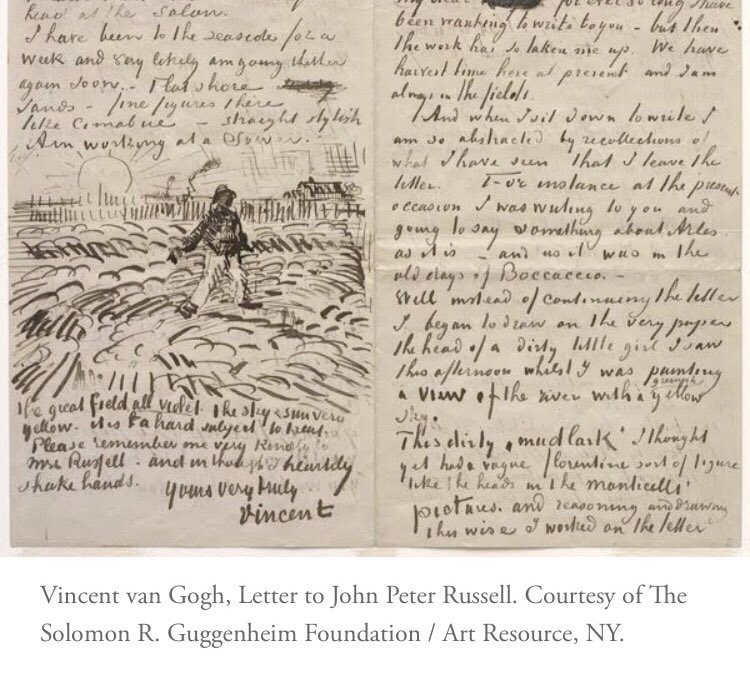 head at the Salon.
I have been to the seaside for a
week and very likely am going thither
again soon. - Flat shore
sands - fine figures there
like Cimabue - straight stylish
Am working at a Sower.
the great field all violet the sky & sun very
yellow. it is a hard subject to treat.
Please remember me very kindly to
Mrs Russell - and in thought I heartily
shake hands.
Yours very truly
Vincent
my dear for ever so long I have
been wanting to write to you - but then
the work has so taken me up. We have
harvest time here at present and I am
always in the fields.
And when I sit down to write I
am so abstracted by recollections of
what I have seen that I leave the
letter. For instance at the present
occasion I was writing to you and
going to say something about Arles
as it is - and as it was in the
old days of Boccaccio. -
Well instead of continuing the letter
I began to draw on the very paper
the head of a dirty little girl I saw
this afternoon whilst I was painting
a view of the river with a greenish yellow
sky.
This dirty „mudlark‟ I thought
yet had a vague florentine sort of figure
like the heads in the monticelli
pictures. and reasoning and drawing
this wise I worked on the letter
Vincent van Gogh, Letter to John Peter Russell. Courtesy of The
Solomon R. Guggenheim Foundation / Art Resource, NY.